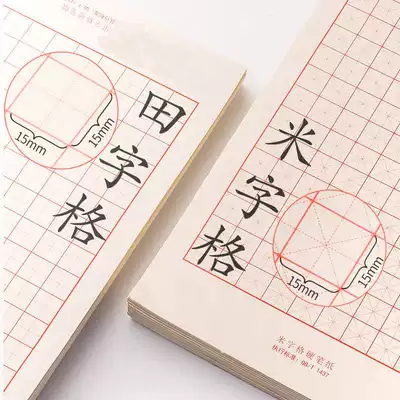 田字格
15mm
15mm
米字格
15mm
15mm
米字格硬笔纸
执行标准：QB/T 1437